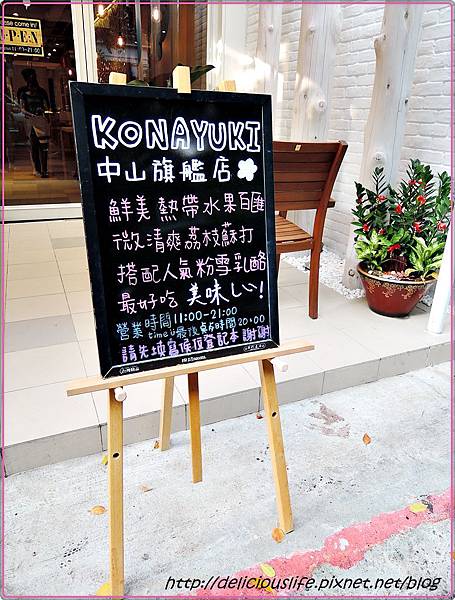 Please come in!
OPEN
11:00-21:00
KONAYUKI
中山旗艦店
鮮美熱帶水果百匯
微清爽荔枝蘇打
搭配人氣粉雪乳酪
最好吃 美味しい!
營業時間11:00-21:00
time up最後點餐時間20:00
請先填寫候位登記本 謝謝
http://deliciouslife.pixnet.net/blog